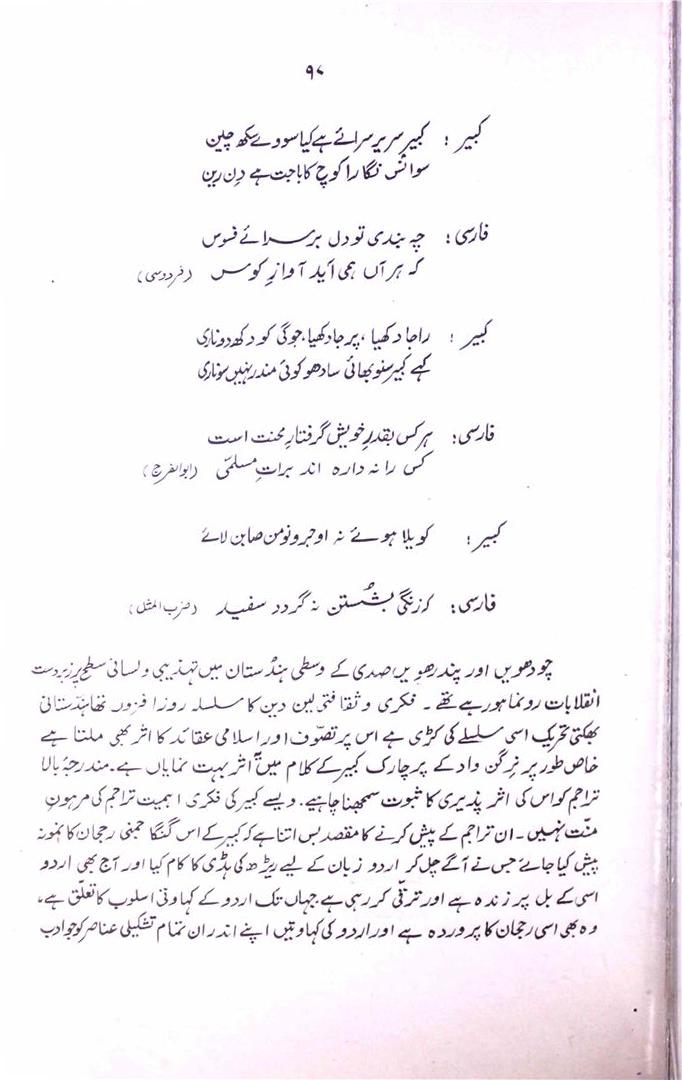 ۹۰
کبیر : کبیر سریر سرائے ہے کیا سووے سکھ چین
سوانس نگارا کوچ کا باجت ہے دِن رین
فارسی : چہ بندی تو دل بر سرائے فسوس
کہ ہر آں ہمی آید آوازِ کوس (فردوسی)
کبیر : راجا دکھیا ، پرجا دکھیا، جوگی کو دکھ دوناری
کہے کبیر سنو بھائی سادھو کوئی مندر نہیں سوناری
فارسی : ہرکس بقدرِ خویش گرفتارِ محنت است
کس را نہ دارہ اند براتِ مسلمّی (ابوالفرج)
کبیر : کویلا ہوئے نہ اوجرو نومن صابن لائے
فارسی : کہ زنگی بشُستن نہ گردد سفید (ضرب المثل)
چودھویں اور پندرھویں صدی کے وسطی ہندُستان میں تہذیبی و لسانی سطح پر زبردست
انقلابات رونما ہو رہے تھے ۔ فکری و ثقافتی لین دین کا سلسلہ روز افزوں تھا ہندستانی
بھکتی تحریک اسی سلسلے کی کڑی ہے اس پر تصوّف اور اسلامی عقائد کا اثر بھی ملتا ہے
خاص طور پر نرگن واد کے پرچارک کبیر کے کلام میں اثر بہت نمایاں ہے۔ مندرجۂ بالا
تراجم کو اس کی اثر پذیری کا ثبوت سمجھنا چاہیے۔ ویسے کبیر کی فکری اہمیت تراجم کی مرہونِ
منّت نہیں ۔ ان تراجم کے پیش کرنے کا مقصد بس اتنا ہے کہ کبیر کے اس گنگا جمنی رجحان کا نمونہ
پیش کیا جائے جس نے آگے چل کر اردو زبان کے لیے ریڑھ کی ہڈی کا کام کیا اور آج بھی اردو
اسی کے بل پر زندہ ہے اور ترقی کر رہی ہے جہاں تک اردو کے کہاوتی اسلوب کا تعلق ہے،
وہ بھی اسی رجحان کا پروردہ ہے اور اردو کی کہاوتیں اپنے اندر ان تمام تشکیلی عناصر کو جو ادب